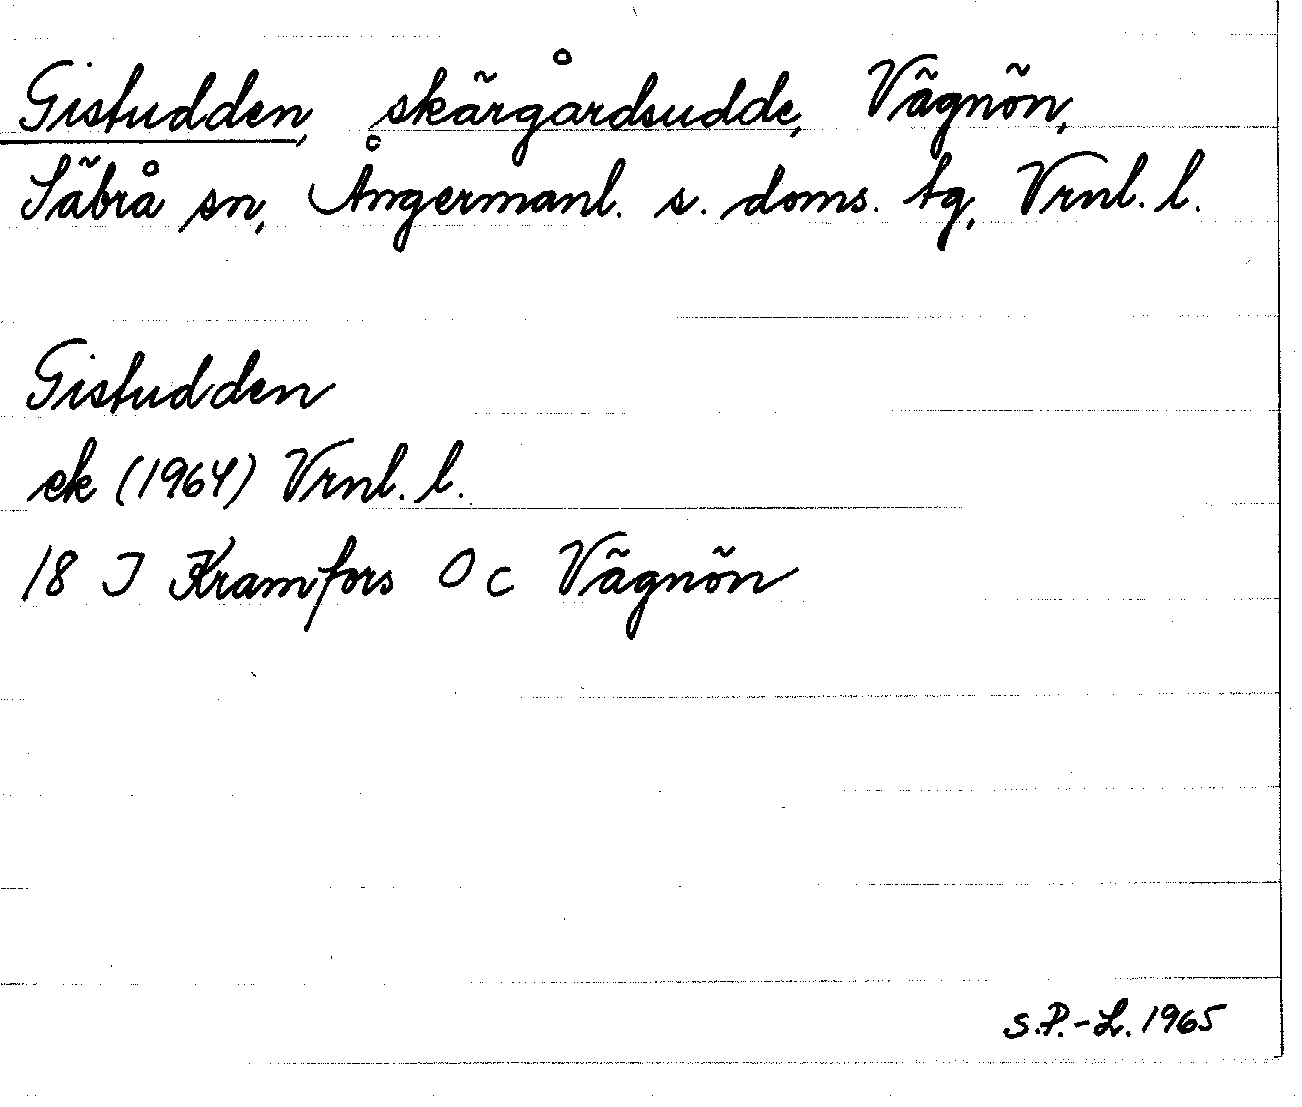 Gistudden, skärgårdsudde, Vägnön,
Säbrå sn, Ångermanl. s. doms. tg, Vrnl. l.
Gistudden
ek (1964) Vrnl. l.
18 J Kramfors O c Vägnön
S.P.-L. 1965